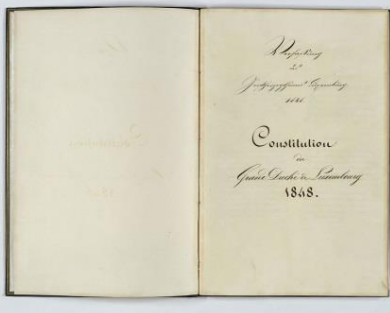 Verfassung
des
Großherzogthums Luxemburg
1848
Constitution
du
Grand Duché de Luxembourg
1848.